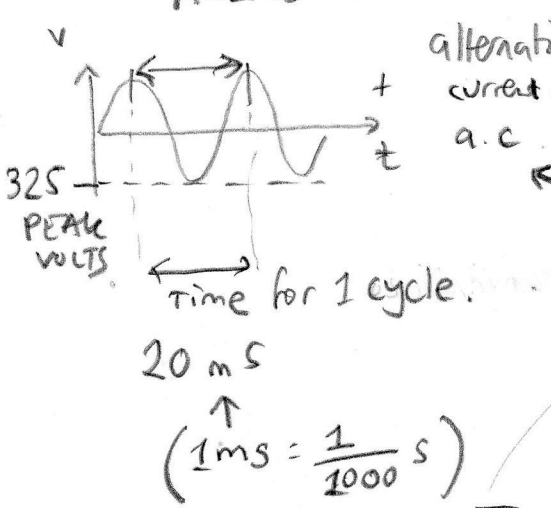 V
alternati
+ current
t a.c
325
PEAK
VOLTS.
Time for 1 cycle.
20 mS
(1ms = 1/1000 s)